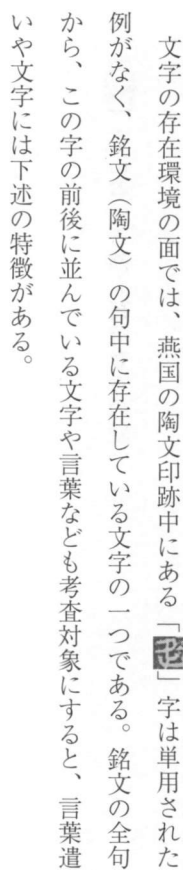 文字の存在環境の面では、燕国の陶文印跡中にある「」字は単用された
例がなく、銘文（陶文）の句中に存在している文字の一つである。銘文の全句
から、この字の前後に並んでいる文字や言葉なども考査対象にすると、言葉遣
いや文字には下述の特徴がある。